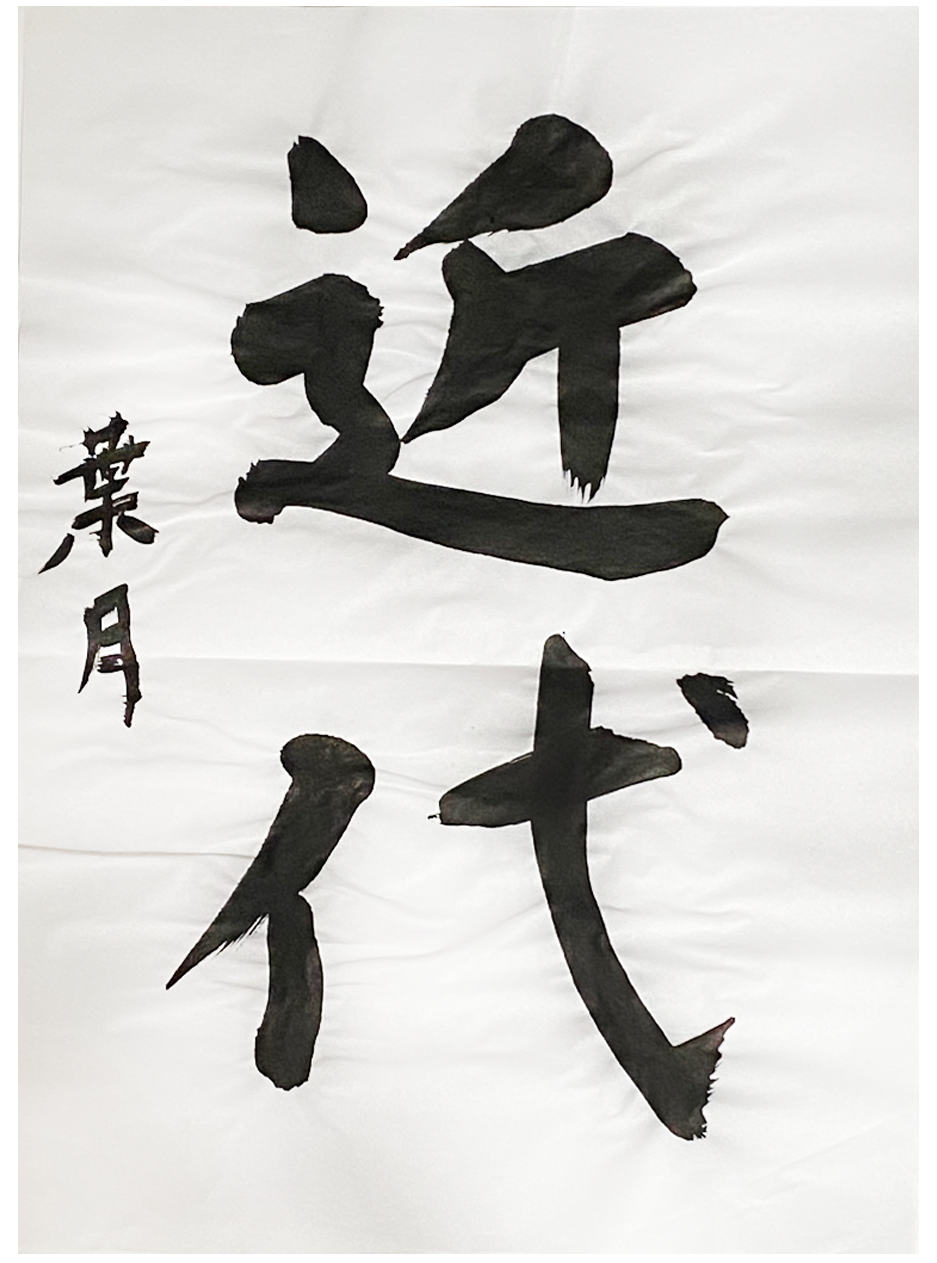 近代
葉月